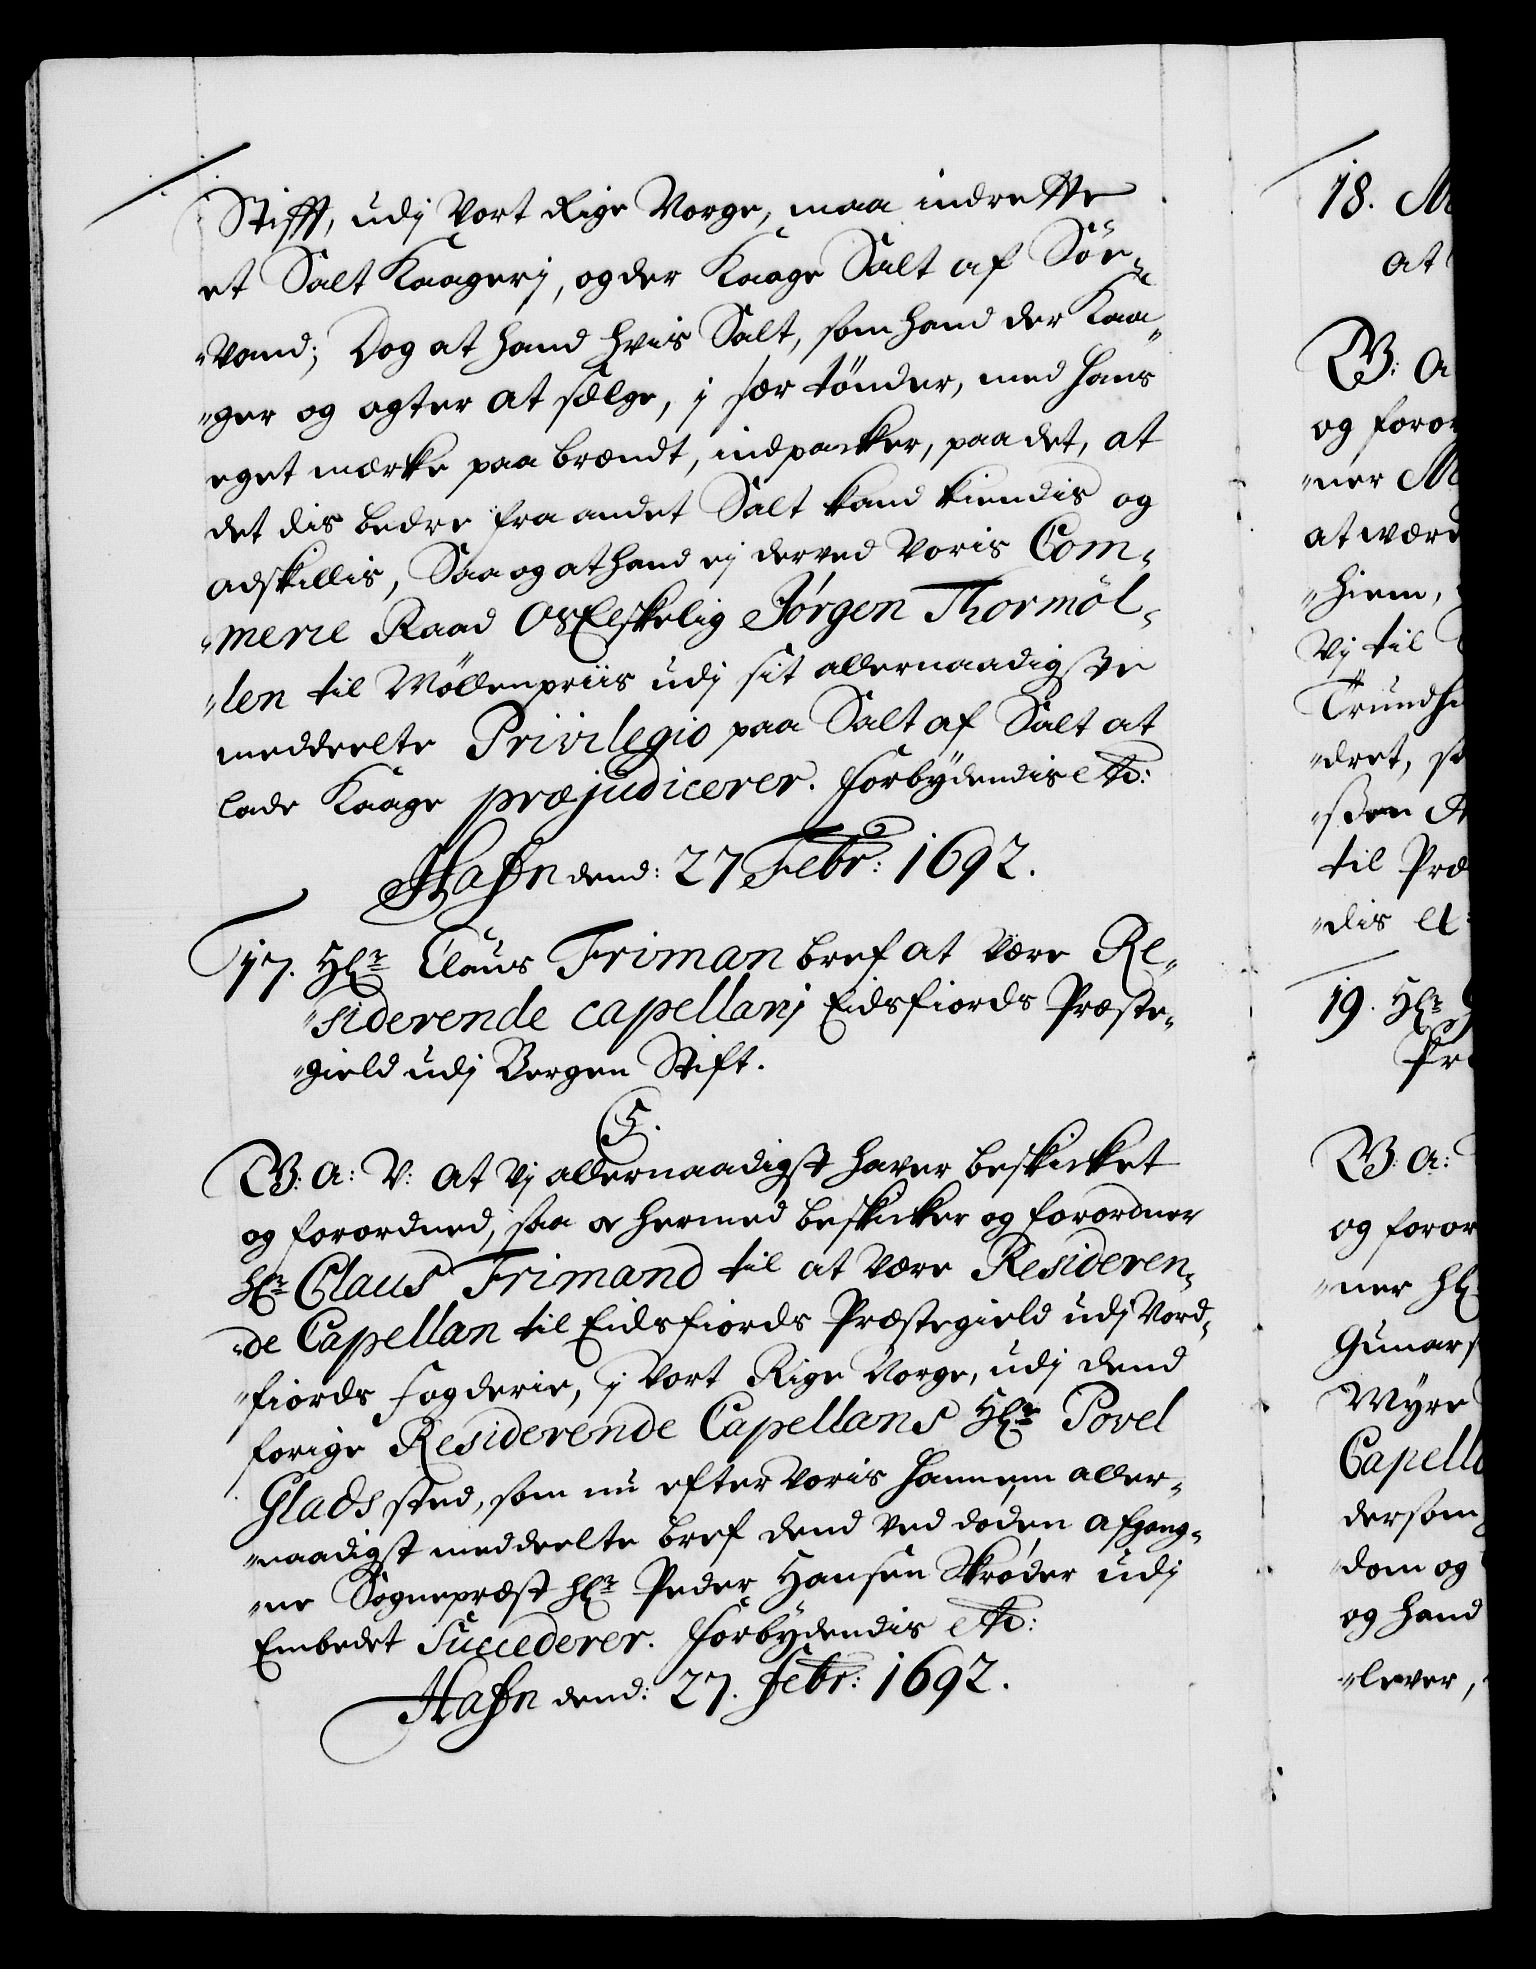 Stifft, udj Vort Rige Norge, maa indrette
et Salt Kaagerj, og der Kaage Salt af Söe-
"vand; Dog at hand hvis Salt, som hand der Kaa-
"ger og agter at sælge, j sær tönder, med hans
eget mærke paa brændt, indpacker, paa det, at
det dis bedre fra andet Salt kand kiendis og
adskillis, Saa og at hand ej derved Voris Com-
"merce Raad Os Elskelig Jörgen Thormöl-
"len til Möllenpriis udj sit allernaadigste
meddeelte Privilegio paa Salt af Salt at
lade Kaage præjudicerer. Forbydendis etc:
Hafn dend: 27 Febr: 1692.
17. Hr Claus Friman bref at være Re-
"siderende capellan j Eidsfiords Præste-
"gield udj Bergen Stift.
C5.
W: A: V: At Vj allernaadigst haver beskicket
og forordned, saa og hermed beskicker og forordner
Hr Claus Frimand til at være Resideren-
"de Capellan til Eidsfiords Præstegield udj Nord-
"fiords Fogderie, j Vort Rige Norge, udj dend
forige Residerende Capellans Hr Povel
Glads sted, som nu efter Voris hannem aller-
"naadigst meddeelte bref dend ved döden afgang-
"ne Sognepræst Hr Peder Hansen Skröder udj
Embedet Succederer. Forbydendis etc:
Hafn dend: 27. Febr: 1692.
18. M
at
W: A
og foror
"ner M
at være
"hiem,
Vj til
Trundhi
"dret, s
"ssen
til Præ
"dis et
19. Hr
Pr
W: A:
og foror
"ner Hr
Gunars
Myre
Capell
dersom
"dom og
og hand
"lever,